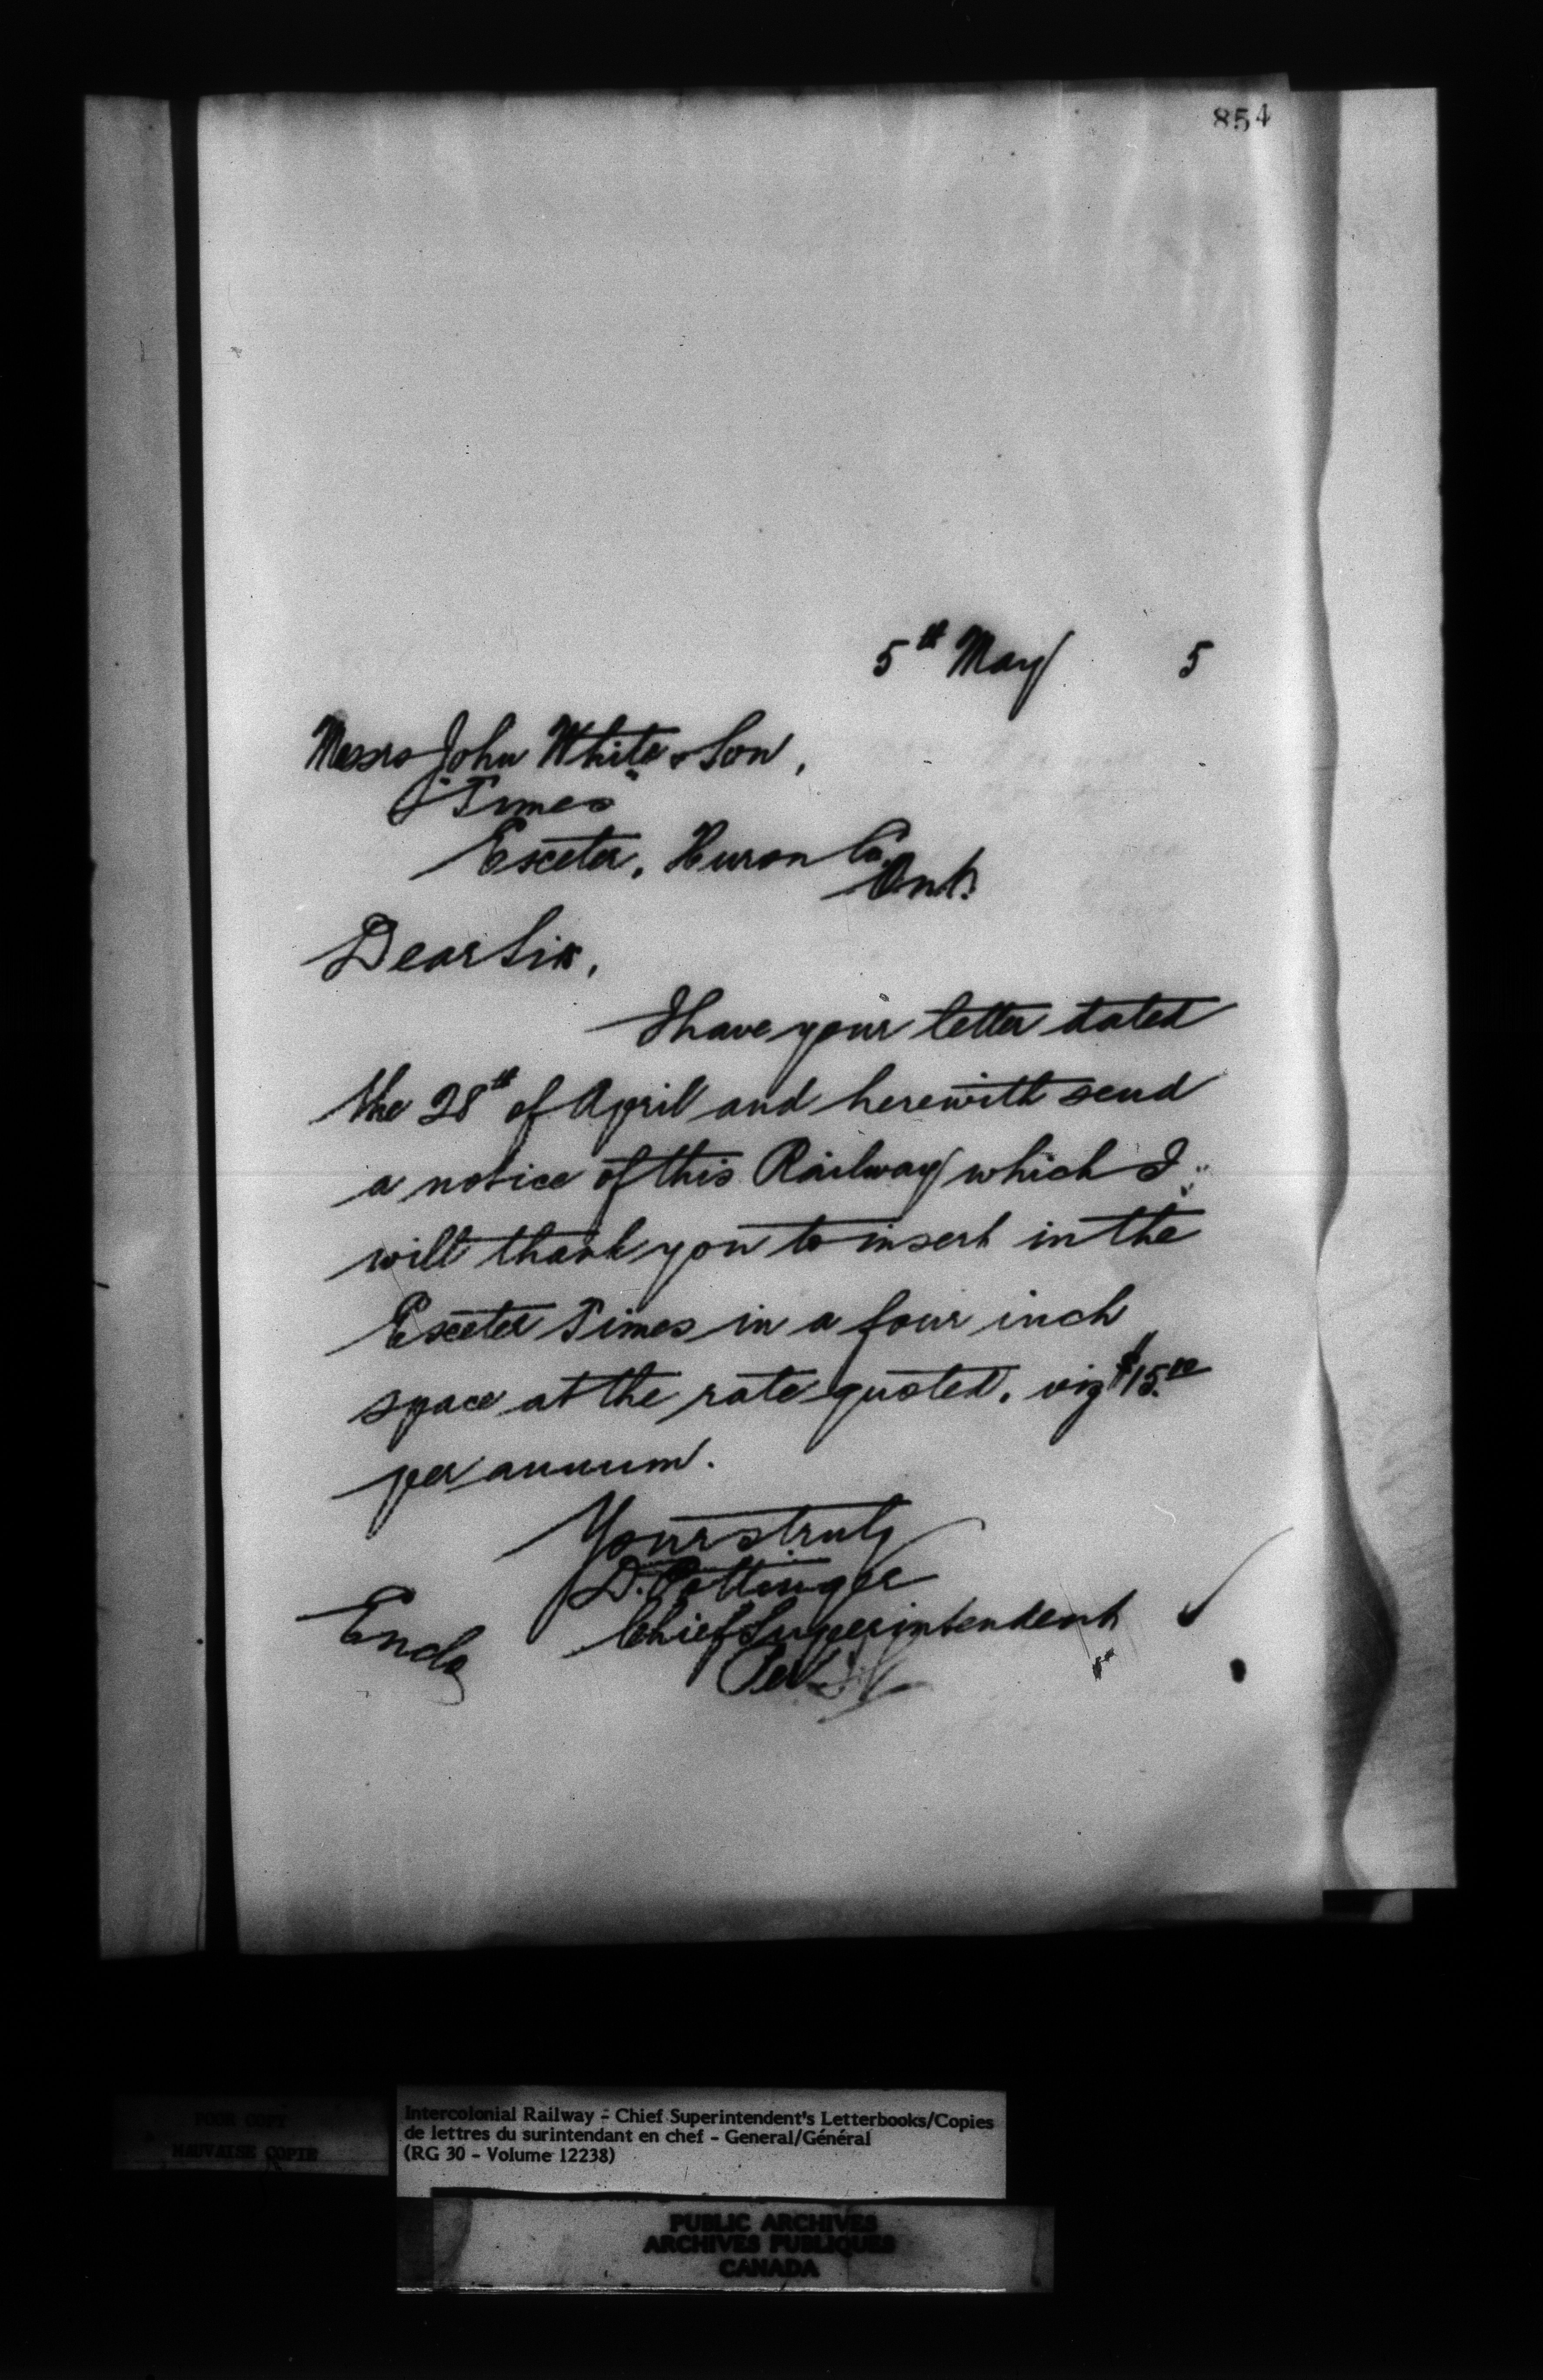 854
5th May 5
Messrs John White & Son,
"Times"
Exeter, Huron Co.
Ont.
Dear Sir,
I have your letter dated
the 28th of April and herewith send
a notice of this Railway which I
will thank you to insert in the
Exeter Times in a four inch
space at the rate quoted, viz $15.00
per annum.
Yours truly
D. Pottinger
Chief Superintendent
Encls
Per
POOR COPY
MAUVAISE COPIE
Intercolonial Railway - Chief Superintendent's Letterbooks/Copies
de lettres du surintendant en chef - General/Général
(RG 30 - Volume 12238)
PUBLIC ARCHIVES
ARCHIVES PUBLIQUES
CANADA